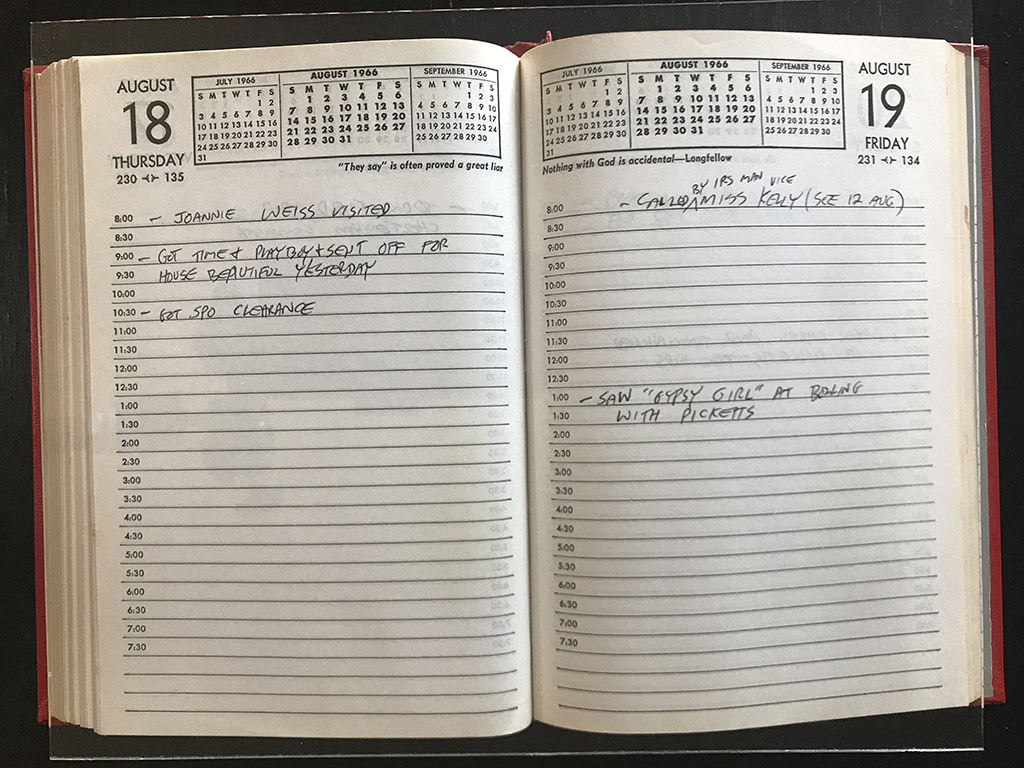 AUGUST
18
THURSDAY
230 ⊰⊱ 135
JULY 1966
S M T W T F S
1 2
3 4 5 6 7 8 9
10 11 12 13 14 15 16
17 18 19 20 21 22 23
24 25 26 27 28 29 30
31
AUGUST 1966
S M T W T F S
1 2 3 4 5 6
7 8 9 10 11 12 13
14 15 16 17 18 19 20
21 22 23 24 25 26 27
28 29 30 31
SEPTEMBER 1966
S M T W T F S
1 2 3
4 5 6 7 8 9 10
11 12 13 14 15 16 17
18 19 20 21 22 23 24
25 26 27 28 29 30
"They say" is often proved a great liar
8:00 – JOANNIE WEISS VISITED
8:30
9:00 – GOT TIME & PLAYBOY & SENT OFF FOR
9:30 HOUSE BEAUTIFUL YESTERDAY
10:00
10:30 – GOT SPO CLEARANCE
11:00
11:30
12:00
12:30
1:00
1:30
2:00
2:30
3:00
3:30
4:00
4:30
5:00
5:30
6:00
6:30
7:00
7:30
JULY 1966
S M T W T F S
1 2
3 4 5 6 7 8 9
10 11 12 13 14 15 16
17 18 19 20 21 22 23
24 25 26 27 28 29 30
31
AUGUST 1966
S M T W T F S
1 2 3 4 5 6
7 8 9 10 11 12 13
14 15 16 17 18 19 20
21 22 23 24 25 26 27
28 29 30 31
SEPTEMBER 1966
S M T W T F S
1 2 3
4 5 6 7 8 9 10
11 12 13 14 15 16 17
18 19 20 21 22 23 24
25 26 27 28 29 30
AUGUST
19
FRIDAY
231 ⊰⊱ 134
Nothing with God is accidental—Longfellow
BY IRS MAN VICE
8:00 – CALLED MISS KELLY (SEE 12 AUG)
8:30
9:00
9:30
10:00
10:30
11:00
11:30
12:00
12:30
1:00 – SAW "GYPSY GIRL" AT BOLLING
1:30 WITH PICKETTS
2:00
2:30
3:00
3:30
4:00
4:30
5:00
5:30
6:00
6:30
7:00
7:30